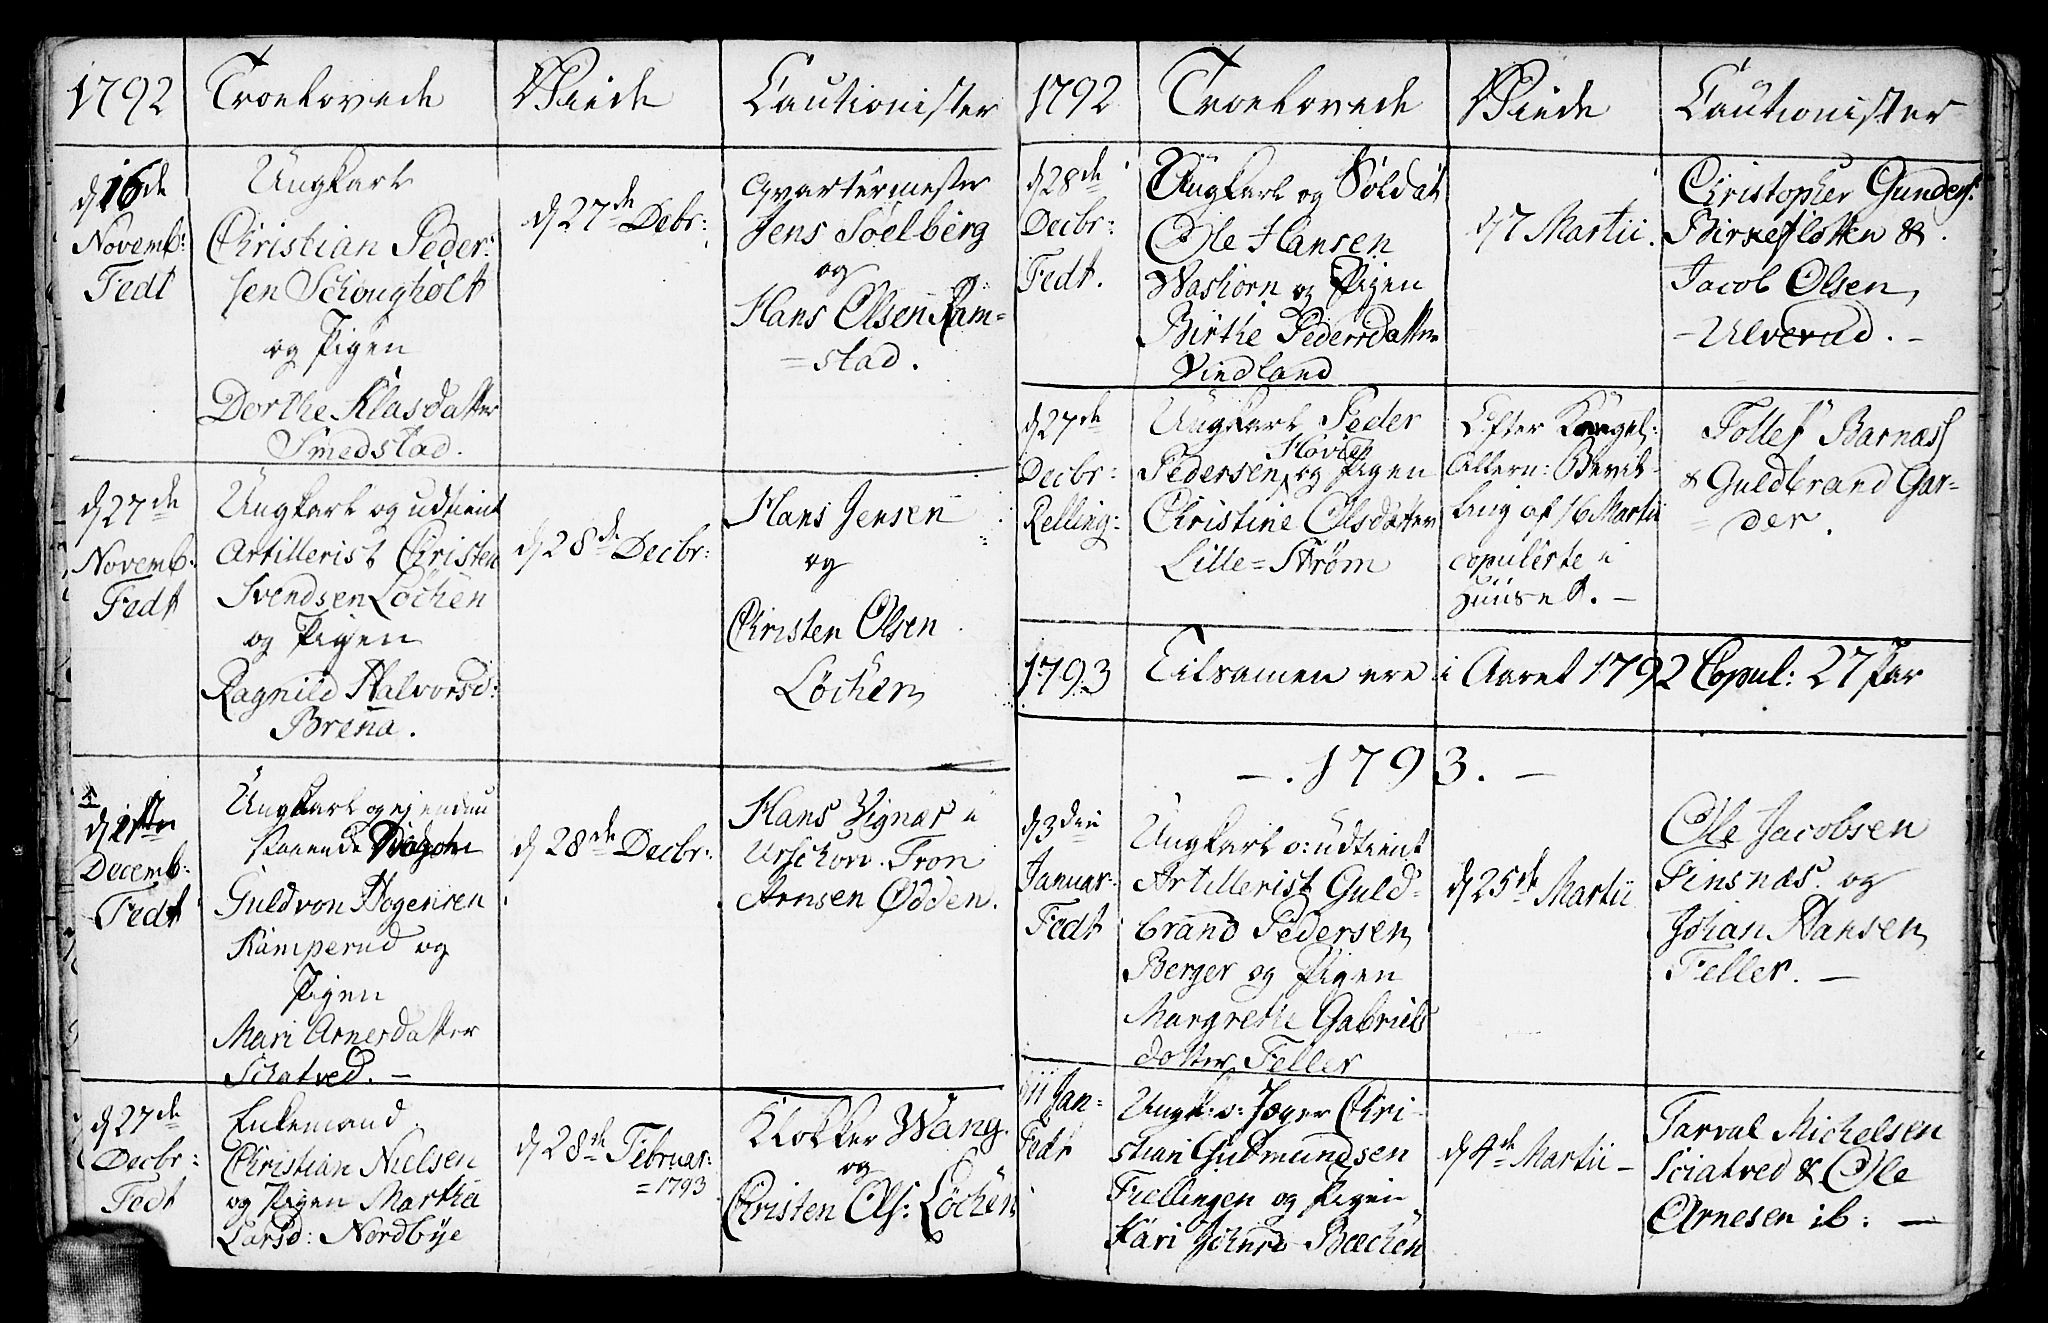 1792
Troelovede
Viede
Cautionister
d 16de
Novemb:
Fedt
Ungkarl
Christian Peder-
sen Schougholt
og Pigen
Dorthe Klasdatter
Smedstad.
d 27de Debr:
Qvarteermester
Jens Söelberg
og
Hans Olsen Ram=
=stad.
d 27de
Novemb:
Fedt
Ungkarl og udtient
Artillerist Christen
Svendsen Löchen
og Pigen
Ragnild Halvorsd:
Brena.
d 28de Decbr:
Hans Jensen
og
Christen Olsen
Löchen
Decemb:
Fedt
Ungkarl og ejendnu
staaende Dragon
Guldvon Hogensen
Kamperud og
Pigen
Mari Arnesdatter
Sciatved. —
d 28de Decbr:
Hans Vignæs i
Urschou. Tron
Arnsen Ødden.
d 27de
Decbr:
Fedt
Enkemand
Christian Nielsen
og Pigen Marthe
Larsd: Nordbÿe
d 28de Februar:
=1793
Klokker Wang
og
Christen Ols: Löchen
1792
Troelovede
Viede
Cautionister
d 28de
Decbr:
Fedt.
Ungkarl og Soldat
Ole Hansen
Washorn og Pigen
Birthe Pedersdatter
Vindland
d 7 Martii.
Christopher Gunders:
Birkefløtten &
Jacob Olsen
- Ulverud. -
d 27de
Decbr:
Relling:
Ungkarl Peder
Høvien
Pedersen, og Pigen
Christine Olsdatter
Lille=Strøm
Efter Kongel:
Allern: Bevil-
ling af 16 Martii
copulerte i
Huuset. —
Tollef Barnæs
& Guldbrand Gar=
= der.
1793
Tilsamen ere i Aaret 1792 Copul: 27 Par
— . 1793. —
d 3die
Januar:
Fedt
Ungkarl o: udtient
Artillerist Guld-
brand Pedersen
Berger og Pigen
Margrethe Gabriels
dotter Feller
d 25de Martii
Ole Jacobsen
Finsnæs. og
Johan Hansen
Feller. —
d 11 Jan-
Fedt
Ungk: o: Jæger Chri-
stian Gudmundsen
Frellingen og Pigen
Kari Johnsd Bæchen
d 4de Martii -
Tarval Michelsen
Sciatved & Ole
Arnesen ib: —